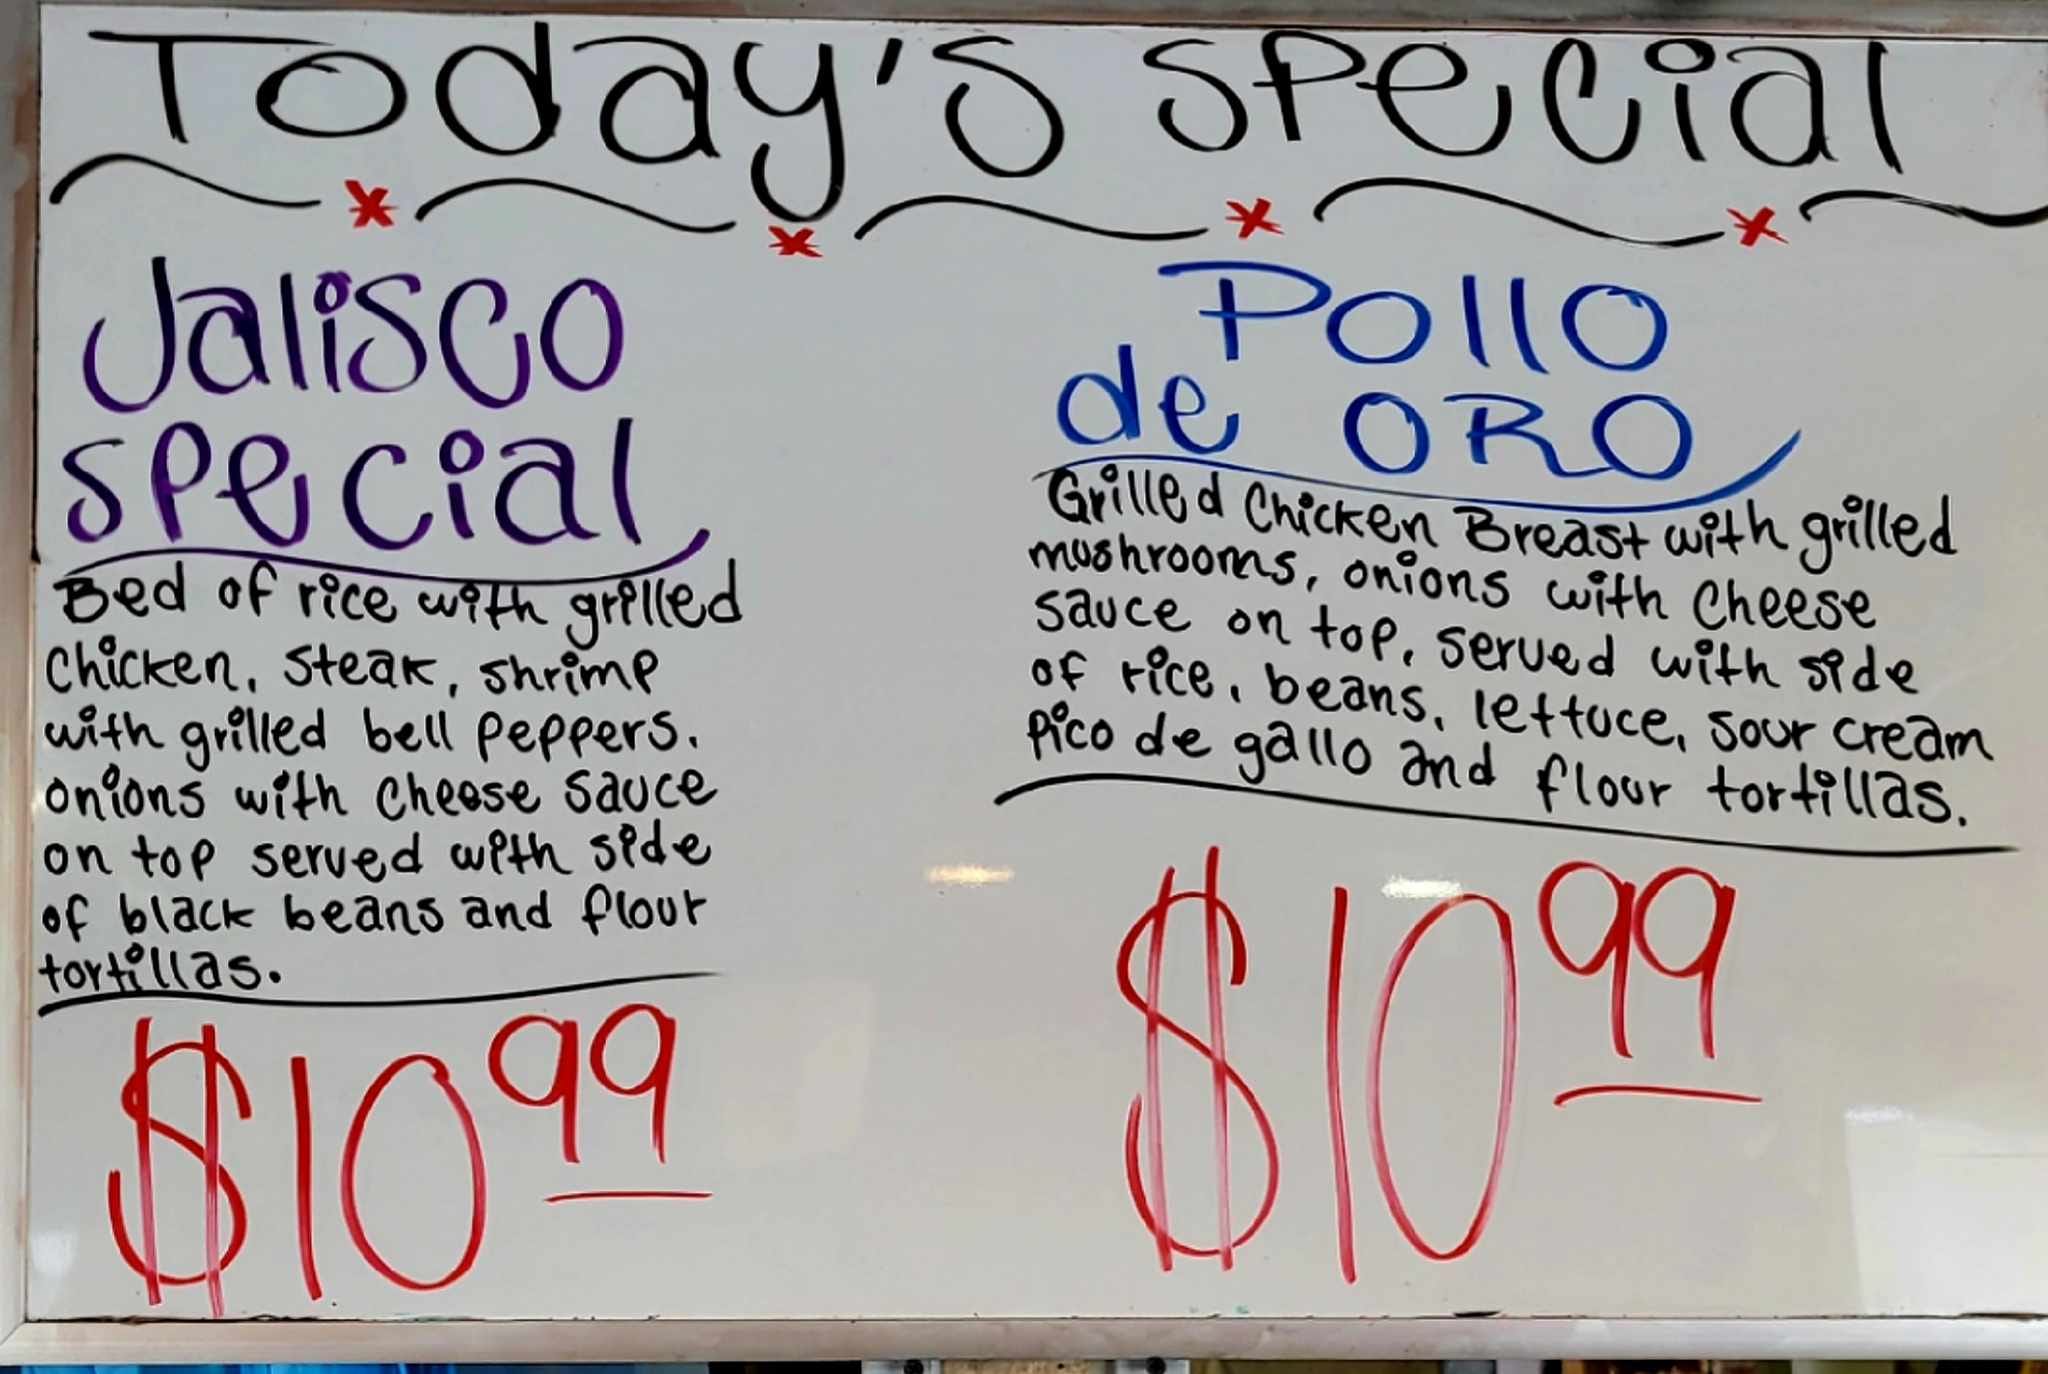 Today's special
Jalisco
special
Bed of rice with grilled
Chicken, steak, shrimp
with grilled bell peppers,
onions with cheese sauce
on top served with side
of black beans and flour
tortillas.
$10 99
Pollo
de ORO
Grilled Chicken Breast with grilled
mushrooms, onions with cheese
sauce on top, served with side
of rice, beans, lettuce, sour cream
Pico de gallo and flour tortillas.
$10 99